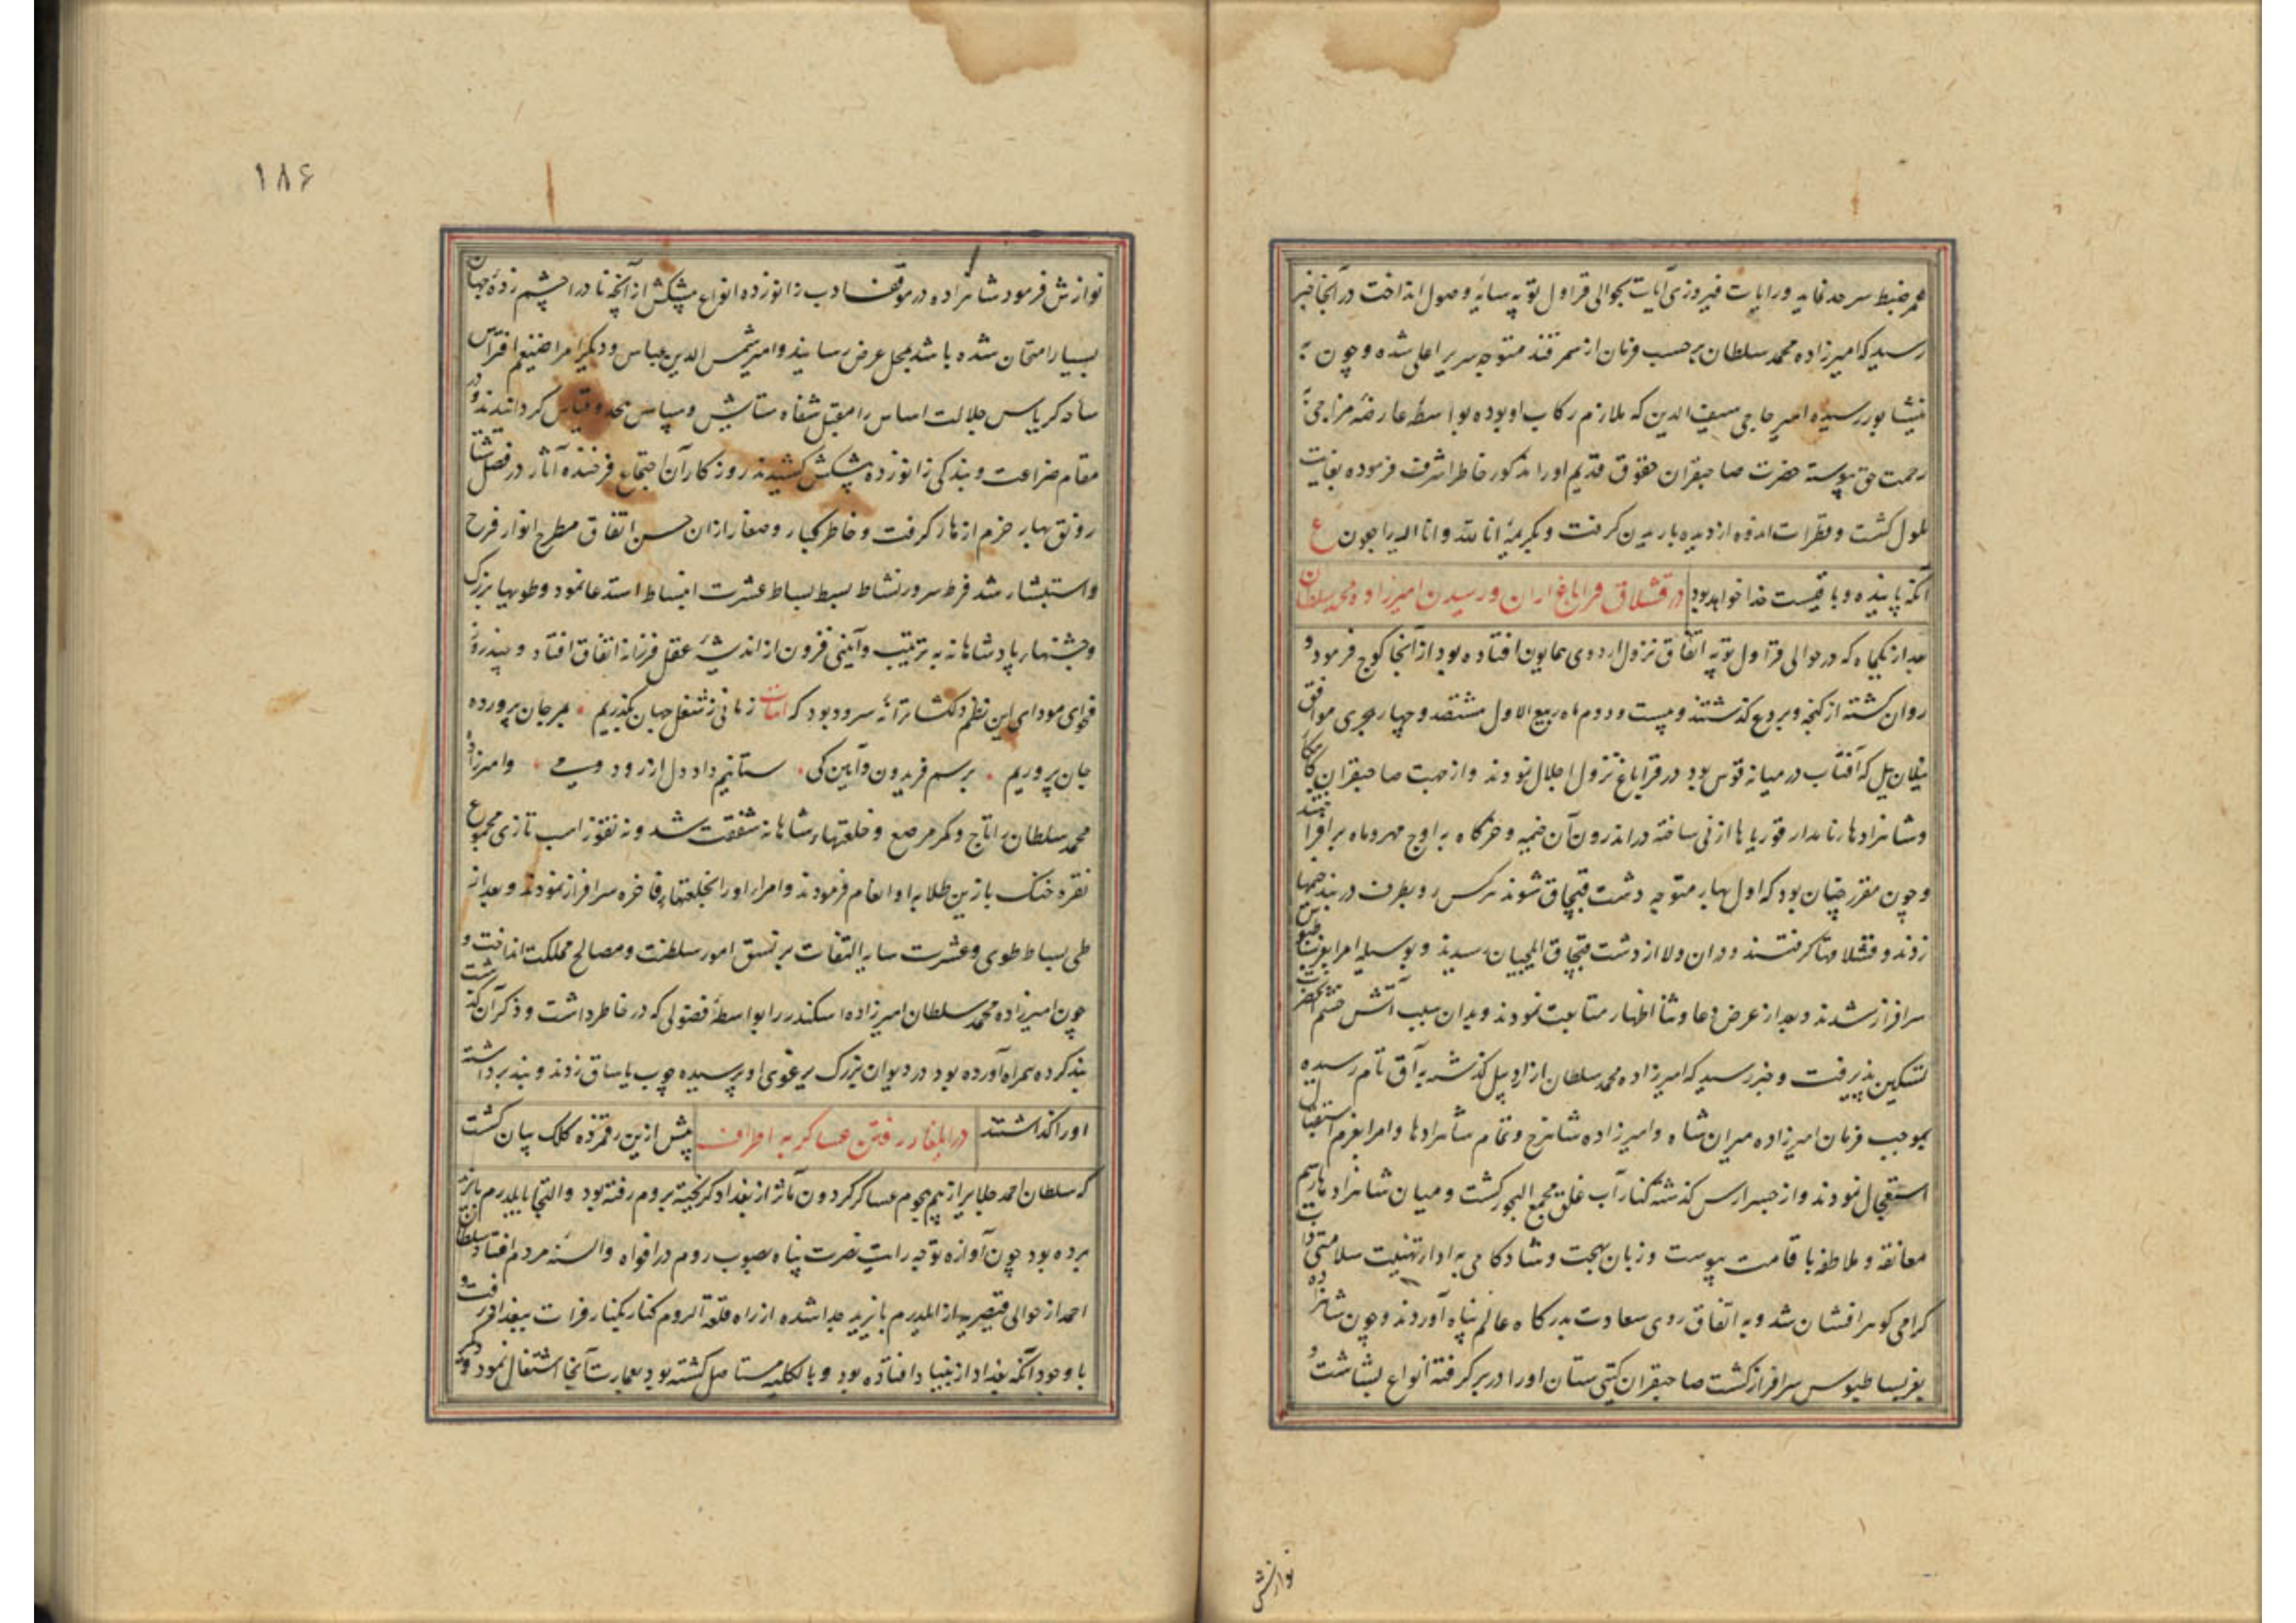 هم ضبط سرحد نماید و رایات فیروزی آیات بحوالی قراول توپه سایهٔ وصول انداخت در آنجا خبر
رسید که امیرزاده محمد سلطان برحسب فرمان از سمرقند متوجه سریر اعلی شده و چون به
نیشابور رسیده امیر حاجی سیف الدین که ملازم رکاب او بوده بواسطهٔ عارضهٔ مزاجی به
رحمت حق پیوسته حضرت صاحبقران حقوق قدیم او را مذکور خاطر اشرف فرموده بغایت
ملول گشت و قطرات اندوه از دیده باریدن گرفت و بکریمهٔ انا لله و انا الیه راجعون ع
آنکه پاینده و باقیست خدا خواهد بود در قشلاق قراباغ اران و رسیدن امیرزاده محمد سلطان
بعد از یکماه که در حوالی قراول توپه اتفاق نزول اردوی همایون افتاده بود از آنجا کوچ فرمود و
روان گشته از گنجه و بردع گذشتند و بیست و دوم ماه ربیع الاول هشتصد و چهار هجری موافق
ییلان ییل که آفتاب در میانهٔ قوس بود در قراباغ نزول اجلال نمودند و از جهت صاحبقران کامکار
و شاهزادهای نامدار قوریاها از نی ساخته در اندرون آن خیمه و خرگاه به اوج مهر و ماه برافراختند
و چون مقرر چنان بود که اول بهار متوجه دشت قبچاق شوند هرکس رو بطرف دربند خیمها
زدند و قشلاقها گرفتند ودران ولا از دشت قبچاق ایلچیان رسیدند و بوسیله امرا بعز بساطبوس
سرافراز شدند و بعد از عرض دعا و ثنا اظهار متابعت نمودند و بدان سبب آتش خشم آنحضرت
تسکین پذیرفت و خبر رسید که امیرزاده محمد سلطان از اردبیل گذشته به آق تام رسیده
بموجب فرمان امیرزاده میران شاه و امیرزاده شاهرخ و تمام شاهزادها و امرا بعزم استقبال
استعجال نمودند و از جسر ارس گذشته بکنار آب غلق مجمع البحور گشت و میان شاهزادها رسم
معانقه و ملاطفه باقامت پیوست و زبان بهجت و شادکامی به ادار تهنیت سلامتی ذات
گرامی گوهر افشان شد و به اتفاق روی سعادت بدرگاه عالم پناه آوردند و چون شاهزاده
بعز بساطبوس سرافراز گشت صاحبقران گیتی ستان او را در بر گرفته انواع بشاشت و
نوازش
۱۸۶
نوازش فرمود شاهزاده در موقف ادب زانو زده انواع پیشکش از آنچه نادرا چشم زدهٔ جهان
بسیار امتحان شده باشد بمحل عرض رسانید و امیر شمس الدین عباس و دیگر امرا ضیغم افتراس
ساحه کریاس جلالت اساس را مقبل شفاه ستایش و سپاس بیحد و قیاس گردانیدند و در
مقام ضراعت و بندگی زانو زده پیشکش کشیدند روزگار آن اجتماع فرخنده آثار در فصل شتا
رونق بهار خرم از سر گرفت و خاطر کبار و صغار ازان حسن اتفاق مطرح انوار فرح
و استبشار شد فرط سرور نشاط بسط بساط عشرت انبساط استدعا نمود و طویهای بزرگ
و جشنهای پادشاهانه به ترتیب و آیینی فزون از اندیشهٔ عقل فرزانه اتفاق افتاد و چند روز
فحوای مودای این نظم دلگشا ترانهٔ سرود بود که ابیات زمانی ز شغل جهان بگذریم بمی جان پرورده
جان پروریم برسم فریدون و آیین کی ستانیم داد دل از رود و می و امیرزاده
محمد سلطان را تاج و کمر مرصع و خلعتهای شاهانه شفقت شد و نه تقوز اسب تازی مجموع
نقره خنک با زین طلا به او انعام فرمودند و امرای او را بخلعتهای فاخره سرافراز نمودند و بعد از
طی بساط طوی و عشرت سایه التفات بر نسق امور سلطنت و مصالح مملکت انداخت و
چون امیرزاده محمد سلطان امیرزاده اسکندر را بواسطهٔ فضولی که در خاطر داشت و ذکر آن گذشت
بند کرده همراه آورده بود در دیوان بزرگ یرغوی او پرسیده چوب یاساق زدند و بند برداشته
او را گذاشتند در ایلغار رفتن عساکر به اطراف پیش ازین رقم زده کلک بیان گشت
که سلطان احمد جلایر از بیم هجوم عساکر گردون مآثر از بغداد گریخته بروم رفته بود و التجا بایلدرم بایزید
برده بود چون آوازه توجه رایت نصرت پناه بصوب روم در افواه و السنه مردم افتاد سلطان
احمد از حوالی قیصریه از ایلدرم بایزید جدا شده از راه قلعة الروم کنار بکنار فرات ببغداد رفت و
با وجود آنکه بغداد از بنیاد افتاده بود و بالکلیه مستاصل گشته بود بعمارت آنجا اشتغال نمود